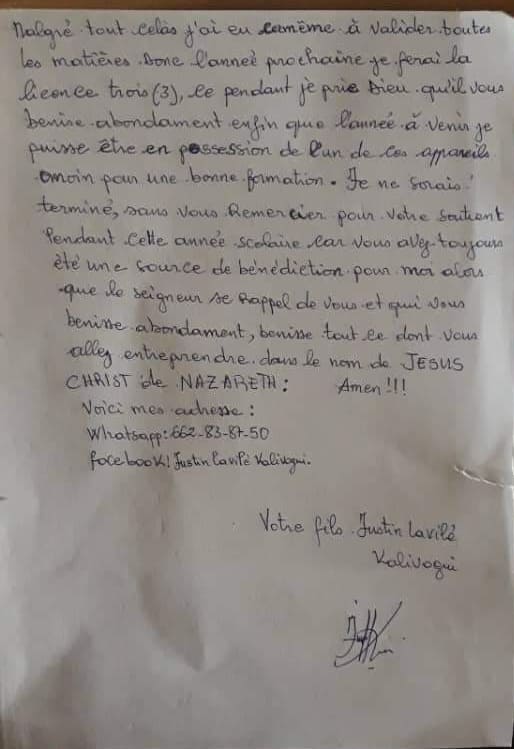 Malgré tout celàs j'ai eu camême à valider toutes
les matières. Donc l'anneé prochaine je ferai la
licence trois (3), ce pendant je prie Dieu qu'il vous
benisse abondament enfin que l'anneé à venir je
puisse être en possession de l'un de ces appareils
omoin pour une bonne formation. Je ne sorais
terminé, sans vous Remercier pour votre soutient
Pendant cette année scolaire car vous avez toujours
été une source de bénédiction pour moi alors
que le seigneur se Rappel de vous et qui vous
benisse abondament, benisse tout ce dont vous
allez entreprendre dans le nom de JESUS
CHRIST de NAZARETH: Amen!!!
Voici mes adresse:
Whatsapp: 662-83-87-50
facebook! Justin Lavilé Kalivogui.
Votre fils Justin Lavilé
Kalivogui